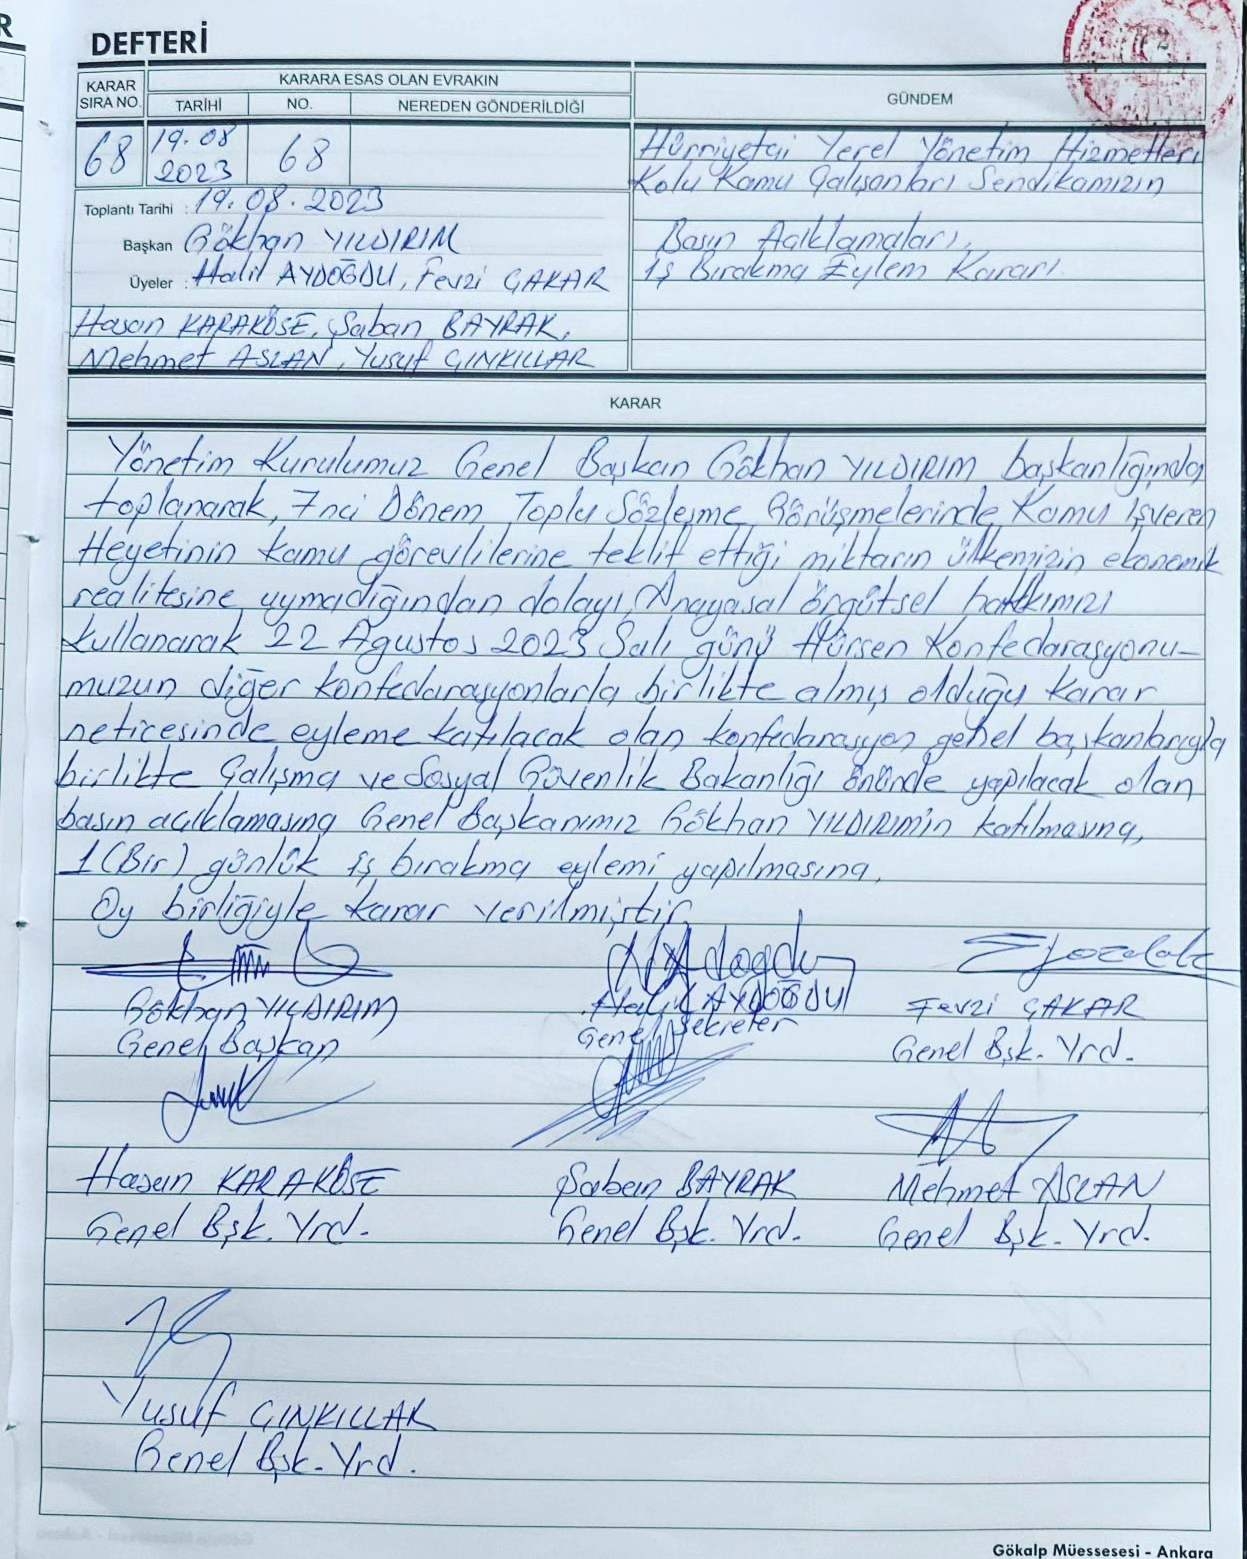 R
DEFTERİ
KARAR SIRA NO.
KARARA ESAS OLAN EVRAKIN
TARİHİ
NO.
NEREDEN GÖNDERİLDİĞİ
GÜNDEM
68
19.08
2023
68
Hürriyetçi Yerel Yönetim Hizmetleri
Kolu Kamu Çalışanları Sendikamızın
Toplantı Tarihi : 19.08.2023
Başkan Gökhan YILDIRIM
Basın Açıklamaları,
Üyeler : Halil AYDOĞDU, Fevzi ÇAKAR
İş Bırakma Eylem Kararı.
Hasan KARAKÖSE, Şaban BAYRAK,
Mehmet ASLAN, Yusuf ÇINKILLAR
KARAR
Yönetim Kurulumuz Genel Başkan Gökhan YILDIRIM başkanlığında
toplanarak, 7nci Dönem Toplu Sözleşme Görüşmelerinde Kamu İşveren
Heyetinin kamu görevlilerine teklif ettiği miktarın ülkemizin ekonomik
realitesine uymadığından dolayı, Anayasal örgütsel hakkımızı
kullanarak 22 Ağustos 2023 Salı günü Hürsen Konfedarasyonu-
muzun diğer konfedarasyonlarla birlikte almış olduğu karar
neticesinde eyleme katılacak olan konfedarasyon genel başkanlarıyla
birlikte Çalışma ve Sosyal Güvenlik Bakanlığı önünde yapılacak olan
basın açıklamasına Genel Başkanımız Gökhan YILDIRIMın katılmasına,
1 (Bir) günlük iş bırakma eylemi yapılmasına,
Oy birliğiyle karar verilmiştir.
Gökhan YILDIRIM
Halil AYDOĞDU
Fevzi ÇAKAR
Genel Başkan
Genel Sekreter
Genel Bşk. Yrd.
Hasan KARAKÖSE
Şaban BAYRAK
Mehmet ASLAN
Genel Bşk. Yrd.
Genel Bşk. Yrd.
Genel Bşk. Yrd.
Yusuf ÇINKILLAR
Genel Bşk. Yrd.
Gökalp Müessesesi - Ankara